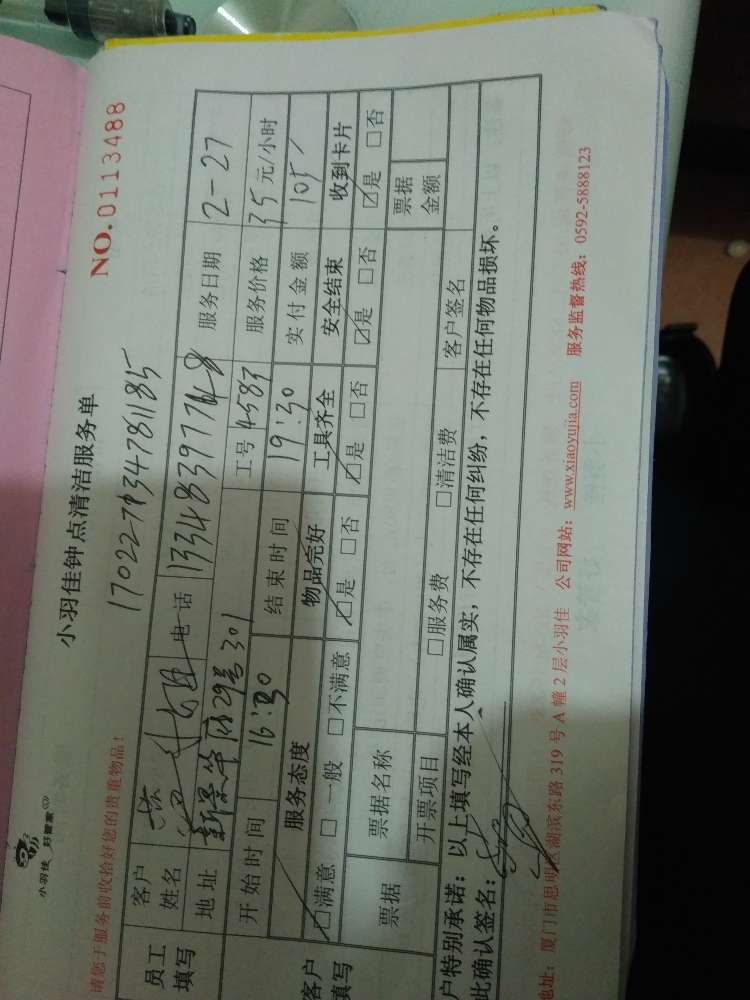 小羽佳 好管家
小羽佳钟点清洁服务单
NO.0113488
请您于服务前收拾好您的贵重物品!
员工填写 客户姓名 电话 服务日期 2-27
地址 29号301 工号 4583 服务价格 35元/小时
开始时间 16:30 结束时间 19:30 实付金额 105
客户填写 服务态度 物品完好 工具齐全 安全结束 收到卡片
☑满意 □一般 □不满意 ☑是 □否 ☑是 □否 ☑是 □否 ☑是 □否
票据 票据名称 票据金额
开票项目 □服务费 □清洁费 客户签名
户特别承诺:以上填写经本人确认属实,不存在任何纠纷,不存在任何物品损坏。
此确认签名:
地址:厦门市思明区湖滨东路319号A幢2层小羽佳 公司网站:www.xiaoyujia.com 服务监督热线:0592-5888123